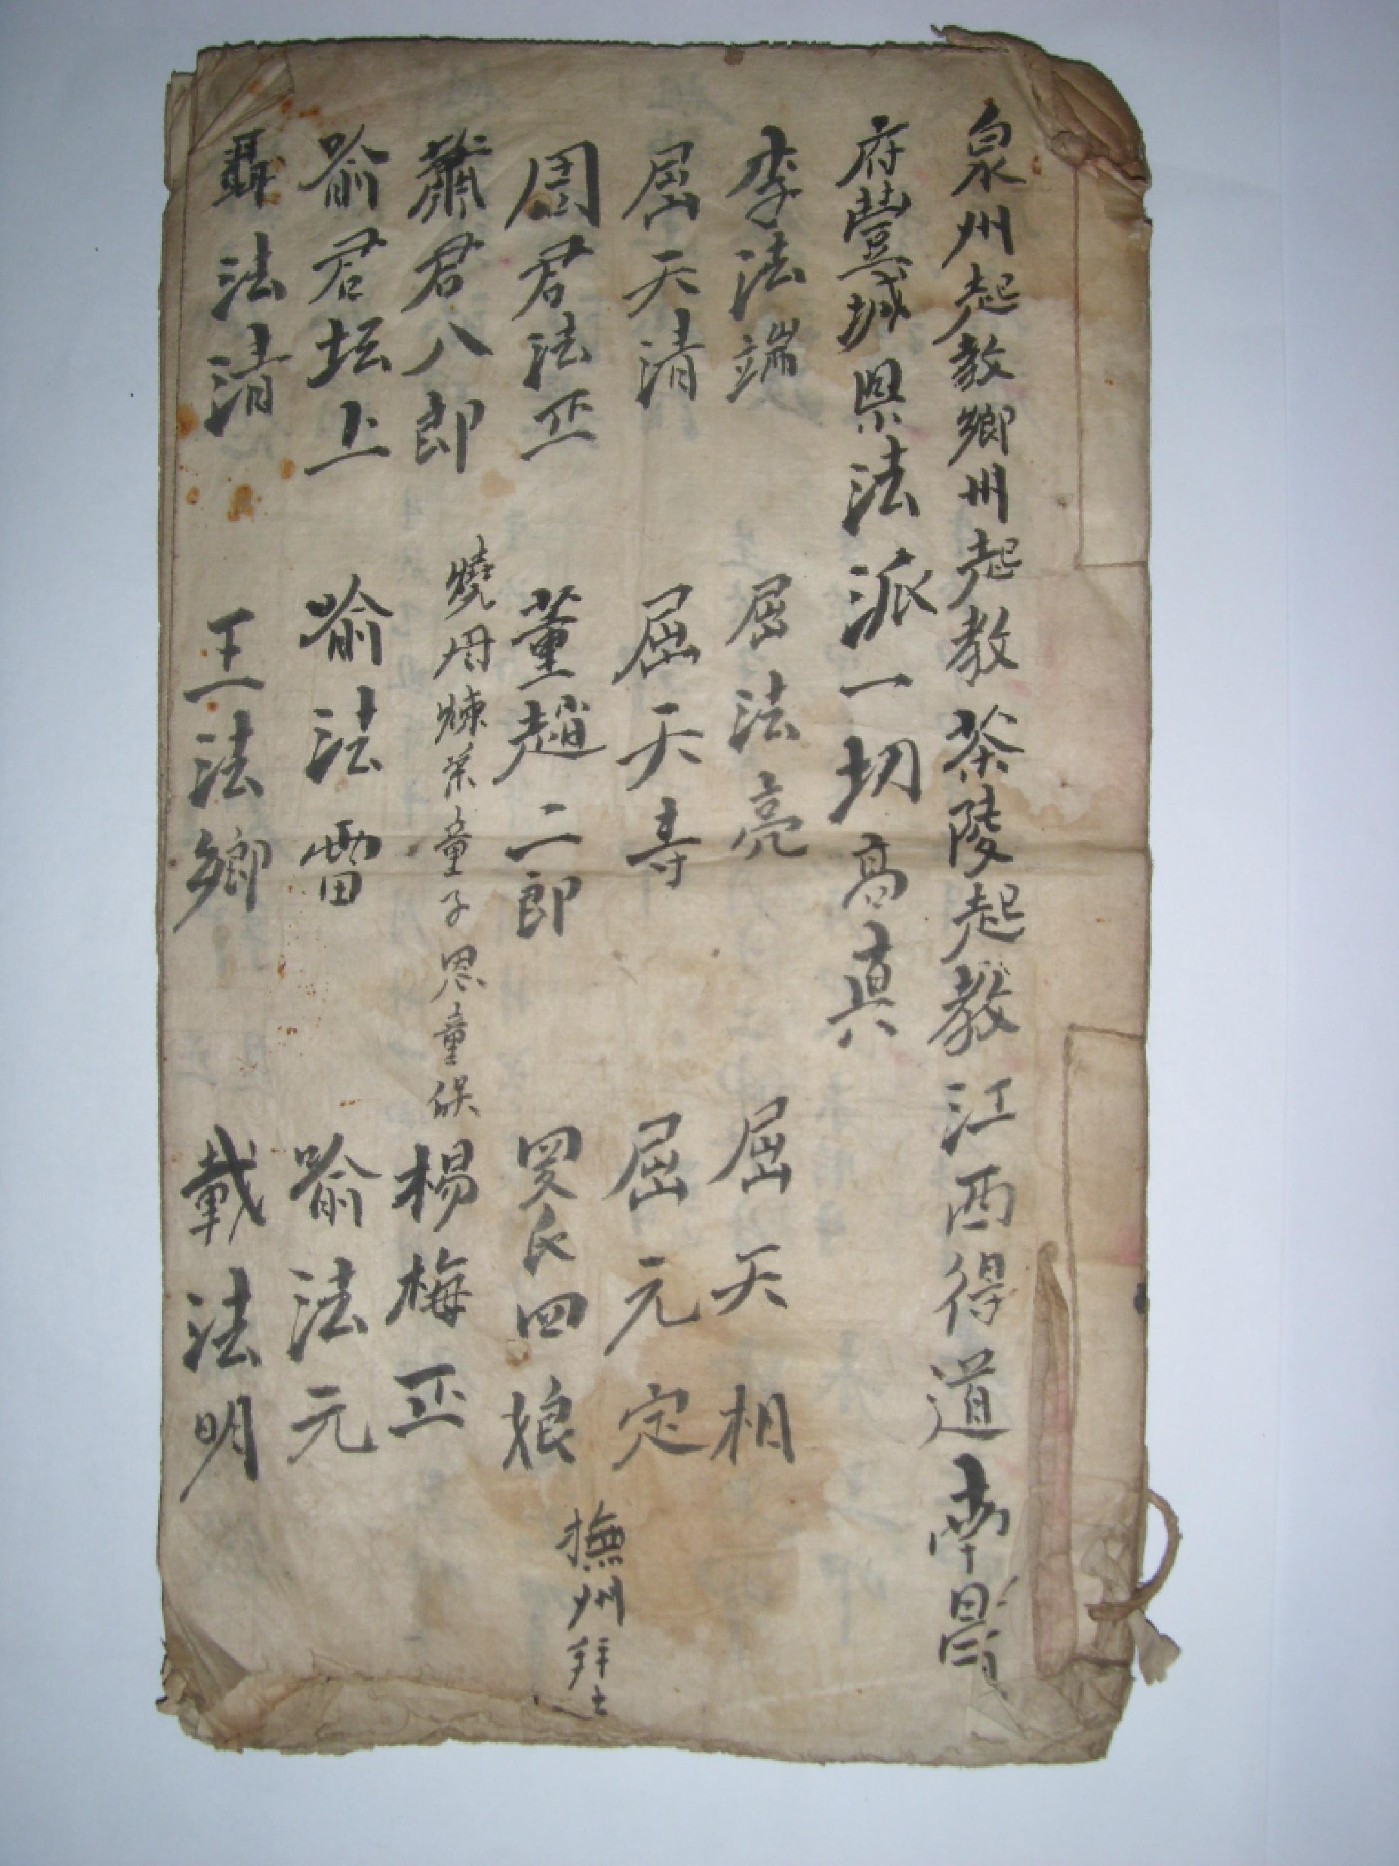 泉州起教鄉州起教茶陵起教江西得道南昌
府豐城県法派一切高真
李法端 屈法亮 屈天相
屈天清 屈天寿 屈元定
周君法正 董趙二郎 羅氏四娘 撫州拜上
蕭君八郎 燒丹煉葉童子恩童保 楊梅正
喻君坛上 喻法雷 喻法元
聶法清 王法鄉 載法明